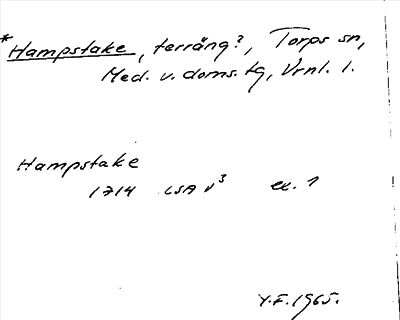 *Hampstake, terräng?, Torps sn,
Med. v. doms. tg, Vrnl. l.
Hampstake
1714 LSA V³ ex. 1
Y.F. 1965.